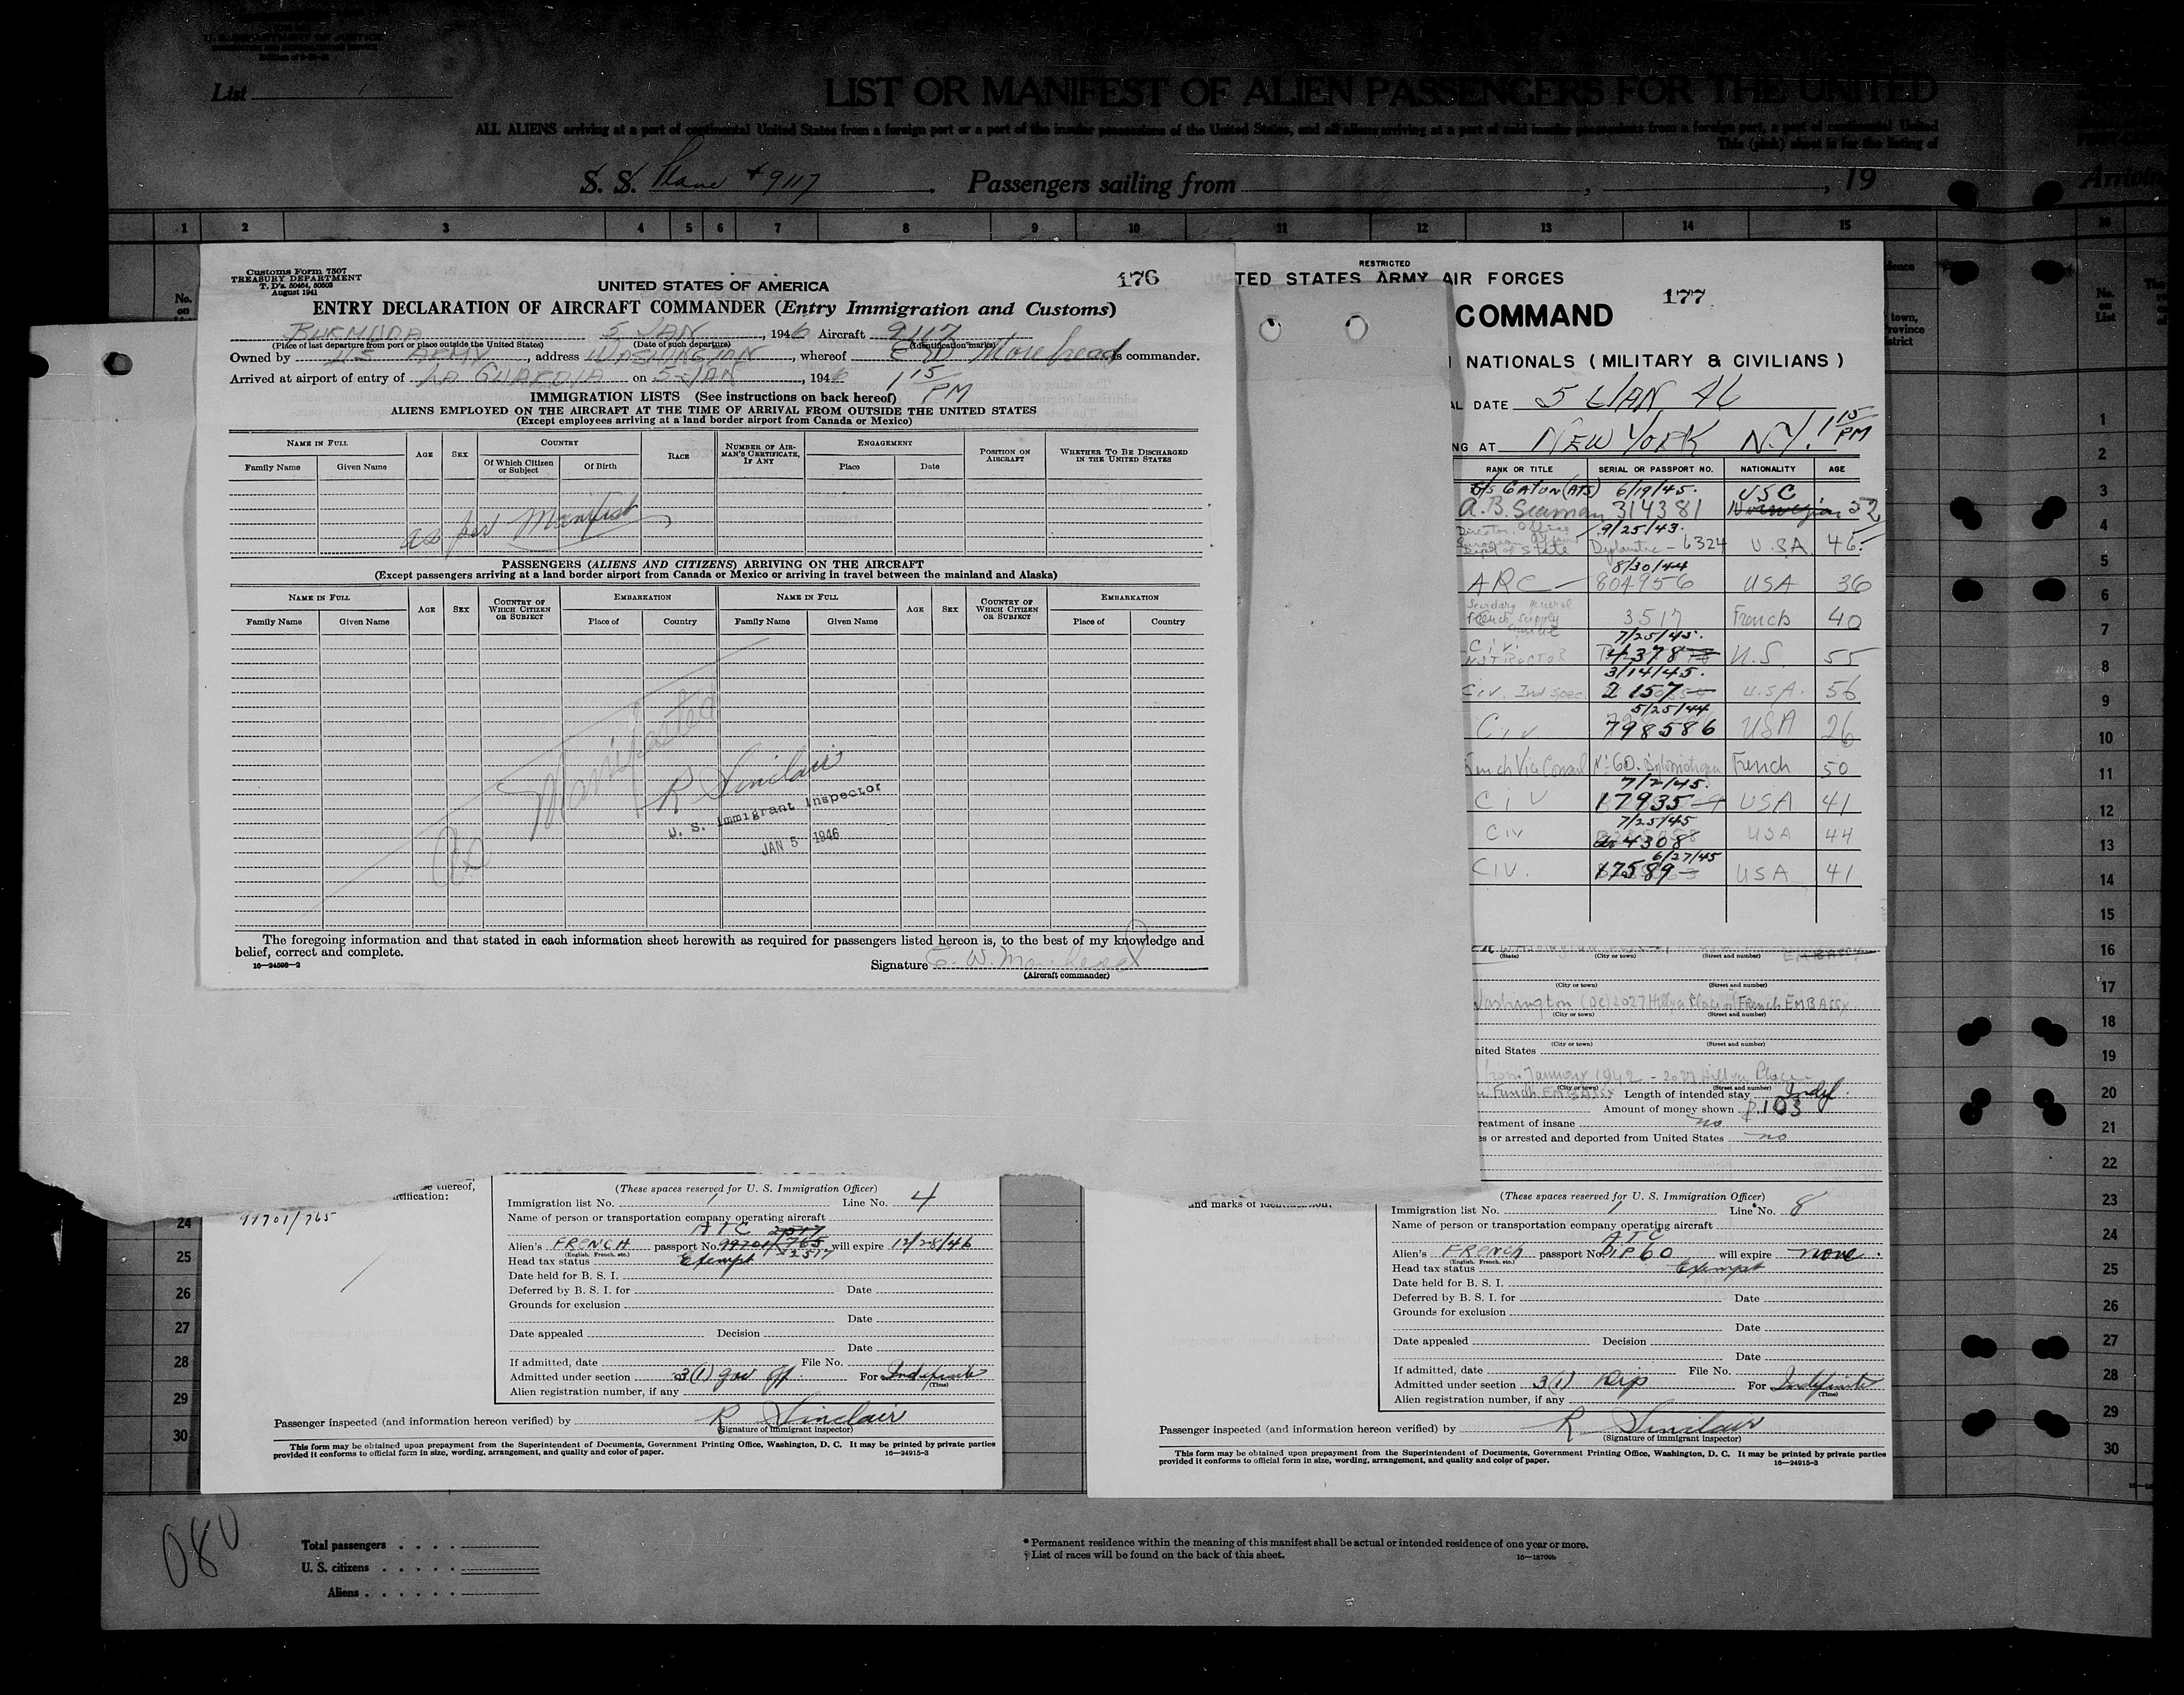 U. S. DEPARTMENT OF JUSTICE
List 1
LIST OR MANIFEST OF ALIEN PASSENGERS FOR THE UNITED
ALL ALIENS arriving at a port of continental United States from a foreign port or a port of the insular possessions of the United States, and all aliens arriving at a port of said insular possessions from a foreign port, a port of continental United
This (pink) sheet is for the listing of
S. S. Plane #9117 Passengers sailing from , , 19
Arriving
1 2 3 4 5 6 7 8 9 10 11 12 13 14 15 16
No.
on
Customs Form 7507
TREASURY DEPARTMENT
T. D's. 50464, 50503
August 1941
176
UNITED STATES OF AMERICA
ENTRY DECLARATION OF AIRCRAFT COMMANDER (Entry Immigration and Customs)
BURMUDA 5 JAN, 1946 Aircraft 9117
(Place of last departure from port or place outside the United States) (Date of such departure) (Identification marks)
Owned by US ARMY, address WASHINGTON, whereof E W Morehead is commander.
Arrived at airport of entry of LA GUARDIA on 5 JAN, 1946 1 15 PM
IMMIGRATION LISTS (See instructions on back hereof)
ALIENS EMPLOYED ON THE AIRCRAFT AT THE TIME OF ARRIVAL FROM OUTSIDE THE UNITED STATES
(Except employees arriving at a land border airport from Canada or Mexico)
NAME IN FULL AGE SEX COUNTRY RACE NUMBER OF AIRMAN'S CERTIFICATE, IF ANY ENGAGEMENT POSITION ON AIRCRAFT WHETHER TO BE DISCHARGED IN THE UNITED STATES
Family Name Given Name Of Which Citizen or Subject Of Birth Place Date
as per Manifest
PASSENGERS (ALIENS AND CITIZENS) ARRIVING ON THE AIRCRAFT
(Except passengers arriving at a land border airport from Canada or Mexico or arriving in travel between the mainland and Alaska)
NAME IN FULL AGE SEX COUNTRY OF WHICH CITIZEN OR SUBJECT EMBARKATION NAME IN FULL AGE SEX COUNTRY OF WHICH CITIZEN OR SUBJECT EMBARKATION
Family Name Given Name Place of Country Family Name Given Name Place of Country
as Manifested
R Sinclair
U. S. Immigrant Inspector
JAN 5 1946
The foregoing information and that stated in each information sheet herewith as required for passengers listed hereon is, to the best of my knowledge and
belief, correct and complete.
16—24595-2
Signature E. W. Morehead
(Aircraft commander)
RESTRICTED
TED STATES ARMY AIR FORCES
177
COMMAND
NATIONALS (MILITARY & CIVILIANS)
AL DATE 5 JAN 46
NG AT NEW YORK N.Y. 1 15 PM
RANK OR TITLE SERIAL OR PASSPORT NO. NATIONALITY AGE
S/S EATON (ATS) 6/19/45. USC
A.B. Seaman 314381 Norwegian 52
Director Office 9/25/43.
European Affairs
Dept of State Diplomatic - 6324 U.S.A 46
8/30/44
ARC 804956 USA 36
Secretary General
French Supply
3517 French 40
7/25/45.
Civ.
INSTRUCTOR 4378 U.S. 55
3/14/45.
Civ. Ind Spec. 2157 U.S.A. 56
5/25/44
Civ 798586 USA 26
French Vice Consul No 60. Diplomatique French 50
7/2/45.
CiV 17935 USA 41
7/25/45
Civ 4308 USA 44
6/27/45
CIV. 17589 USA 41
(State) (City or town) (Street and number) EMBASSY
(City or town) (Street and number)
Washington (DC) 2027 Hillyer Place French EMBASSY
(City or town) (Street and number)
(City or town) (Street and number)
nited States
from January 1942 - 2027 Hillyer Place
(City or town) (Street and number)
French EMBASSY Length of intended stay Indef.
Amount of money shown $103
reatment of insane no
es or arrested and deported from United States no
se thereof,
ntification:
99701/765
(These spaces reserved for U. S. Immigration Officer)
Immigration list No. 1 Line No. 4
Name of person or transportation company operating aircraft
ATC 2517
Alien's FRENCH passport No. 99701/765 will expire 12/28/46
(English, French, etc.) 2517
Head tax status Exempt
Date held for B. S. I.
Deferred by B. S. I. for Date
Grounds for exclusion
Date
Date appealed Decision
Date
If admitted, date File No.
Admitted under section 3(1) gov off. For Indefinite
(Time)
Alien registration number, if any
Passenger inspected (and information hereon verified) by R Sinclair
(Signature of immigrant inspector)
This form may be obtained upon prepayment from the Superintendent of Documents, Government Printing Office, Washington, D. C. It may be printed by private parties
provided it conforms to official form in size, wording, arrangement, and quality and color of paper. 16—24915-3
and marks of identification:
(These spaces reserved for U. S. Immigration Officer)
Immigration list No. 1 Line No. 8
Name of person or transportation company operating aircraft
ATC
Alien's FRENCH passport No. DIP 60 will expire none.
(English, French, etc.)
Head tax status Exempt
Date held for B. S. I.
Deferred by B. S. I. for Date
Grounds for exclusion
Date
Date appealed Decision
Date
If admitted, date File No.
Admitted under section 3(1) Dip For Indefinite
(Time)
Alien registration number, if any
Passenger inspected (and information hereon verified) by R Sinclair
(Signature of immigrant inspector)
This form may be obtained upon prepayment from the Superintendent of Documents, Government Printing Office, Washington, D. C. It may be printed by private parties
provided it conforms to official form in size, wording, arrangement, and quality and color of paper. 16—24915-3
24
25
26
27
28
29
30
No.
on
List
1
2
3
4
5
6
7
8
9
10
11
12
13
14
15
16
17
18
19
20
21
22
23
24
25
26
27
28
29
30
080
Total passengers
U. S. citizens
Aliens
* Permanent residence within the meaning of this manifest shall be actual or intended residence of one year or more.
† List of races will be found on the back of this sheet. 16—18706b